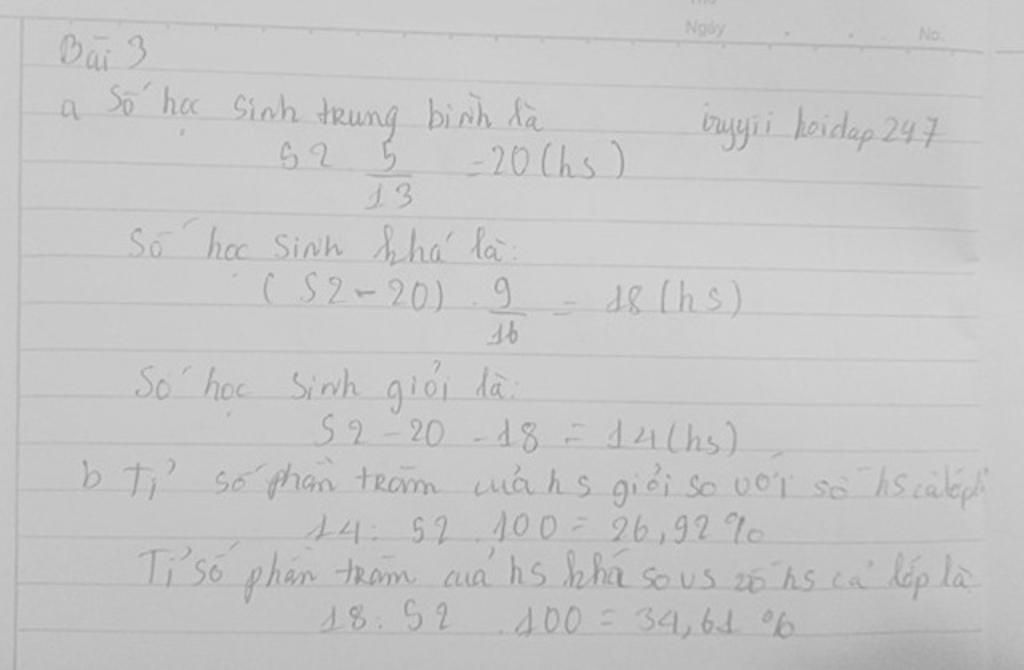 Thứ
Ngày . . No.
Bài 3
a Số học sinh trung bình là iruyyii hoidap247
52 5/13 = 20 (hs)
Số học sinh khá là:
(52 - 20) . 9/16 = 18 (hs)
Số học sinh giỏi là:
52 - 20 - 18 = 14 (hs)
b Tỉ số phần trăm của hs giỏi so với số hs cả lớp
14 : 52 . 100 = 26,92 %
Tỉ số phần trăm của hs khá so vs số hs cả lớp là
18 : 52 . 100 = 34,61 %